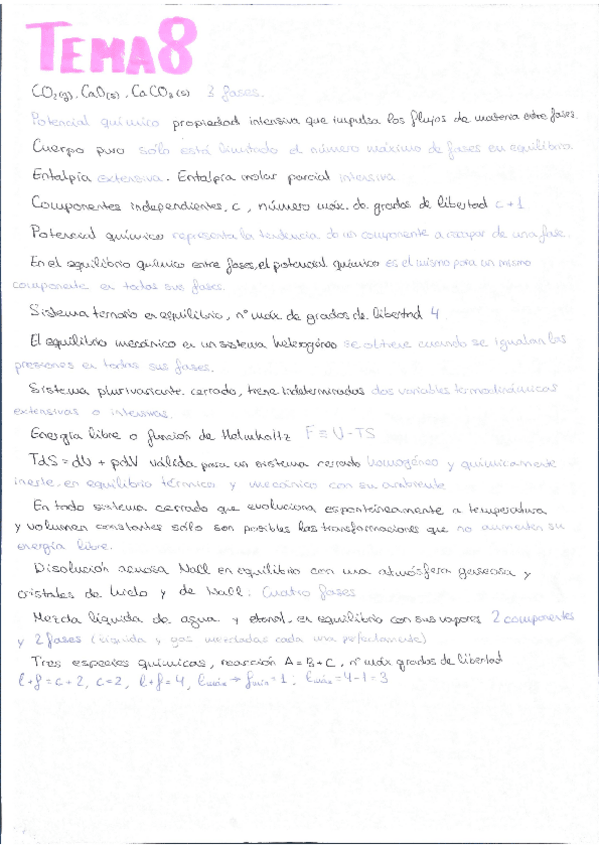 TEMA 8
CO₂(g), CaO(s), CaCO₃(s) 3 fases.
Potencial químico propiedad intensiva que impulsa los flujos de materia entre fases.
Cuerpo puro sólo está limitado el número máximo de fases en equilibrio
Entalpía extensiva. Entalpía molar parcial intensiva
Componentes independientes, c, número máx. de grados de libertad c+1
Potencial químico representa la tendencia de un componente a escapar de una fase.
En el equilibrio químico entre fases, el potencial químico es el mismo para un mismo
componente en todas sus fases.
Sistema ternario en equilibrio, nº máx. de grados de libertad 4
El equilibrio mecánico en un sistema heterogéneo se obtiene cuando se igualan las
presiones en todas sus fases.
Sistema plurivariante cerrado, tiene indeterminadas dos variables termodinámicas
extensivas o intensivas.
Energía libre o función de Helmholtz F ≡ U-TS
TdS = dU + pdV válida para un sistema cerrado homogéneo y químicamente
inerte, en equilibrio térmico y mecánico con su ambiente
En todo sistema cerrado que evoluciona espontáneamente a temperatura
y volumen constantes sólo son posibles las transformaciones que no aumenten su
energía libre.
Disolución acuosa NaCl en equilibrio con una atmósfera gaseosa y
cristales de hielo y de NaCl: Cuatro fases
Mezcla líquida de agua y etanol, en equilibrio con sus vapores 2 componentes
y 2 fases (líquida y gas mezcladas cada una perfectamente)
Tres especies químicas, reacción A = B + C, nº máx grados de libertad
l+f = c+2, c=2, l+f=4, lmáx → fmín = 1; lmáx = 4-1 = 3